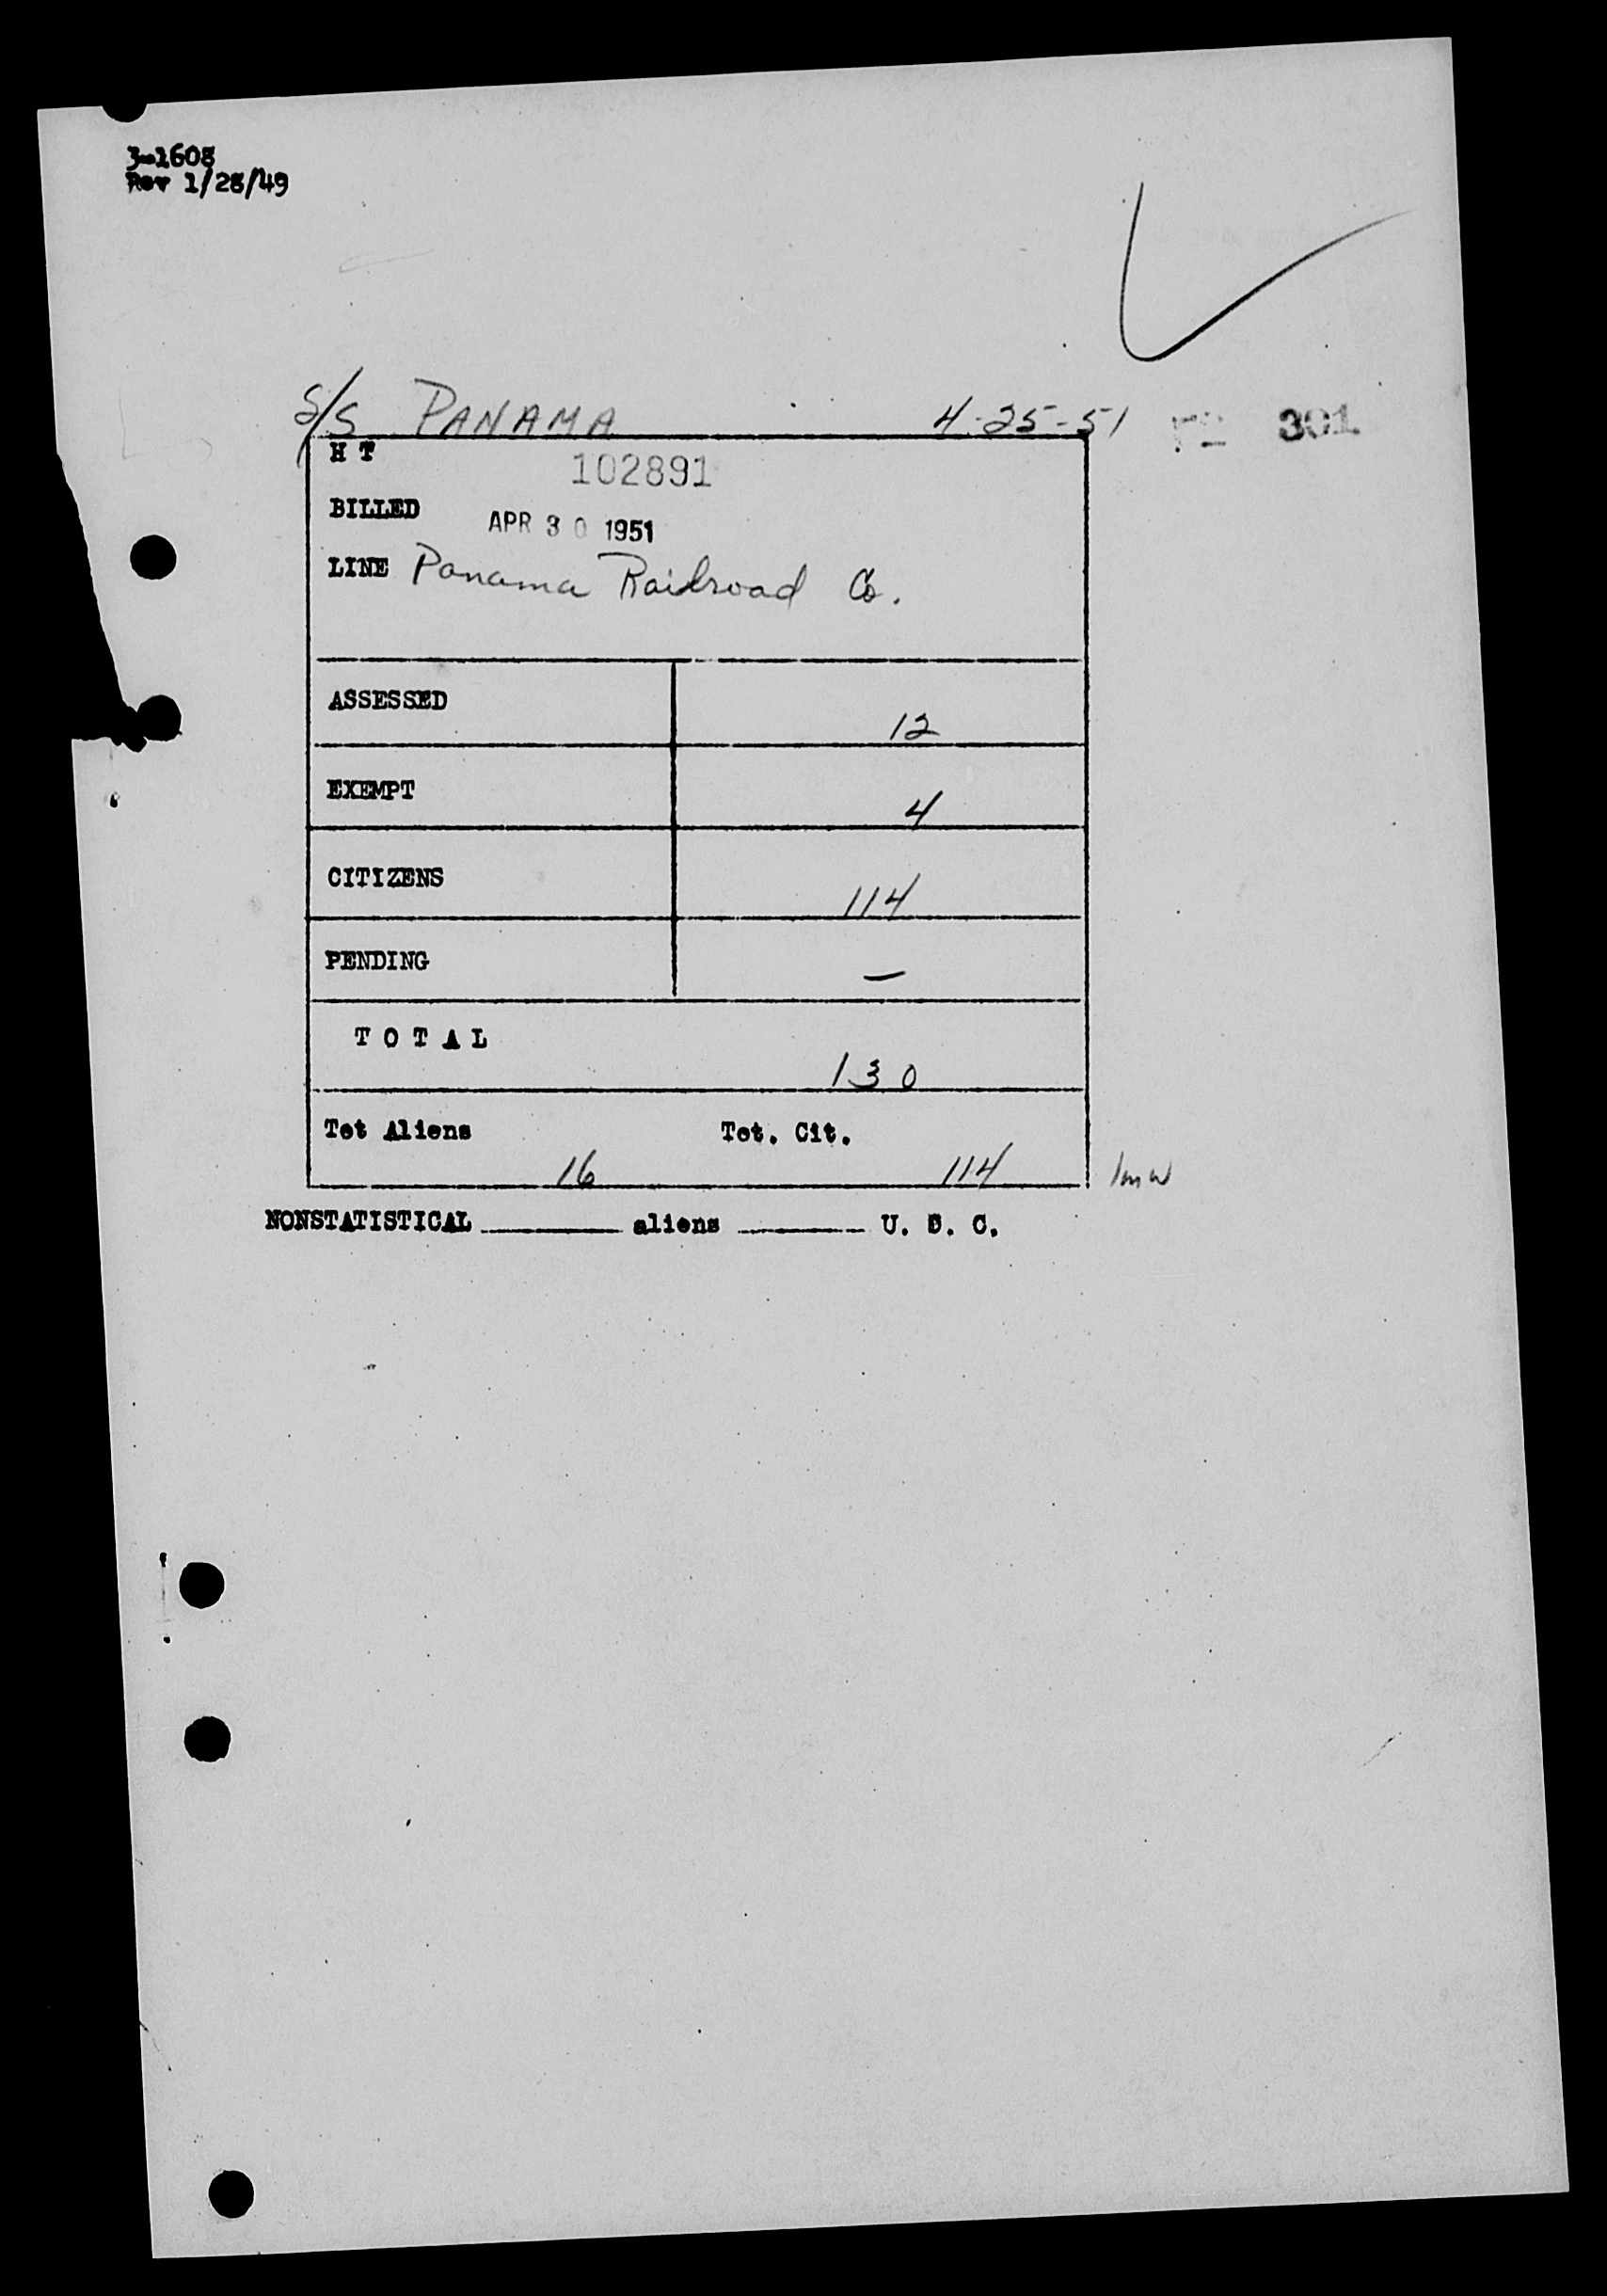 3-1608
Rev 1/28/49
S/S PANAMA 4-25-51 301
H T 102891
BILLED APR 30 1951
LINE Panama Railroad Co.
ASSESSED 12
EXEMPT 4
CITIZENS 114
PENDING —
TOTAL 130
Tot Aliens Tot. Cit.
16 114
NONSTATISTICAL ______ aliens ______ U. S. C.